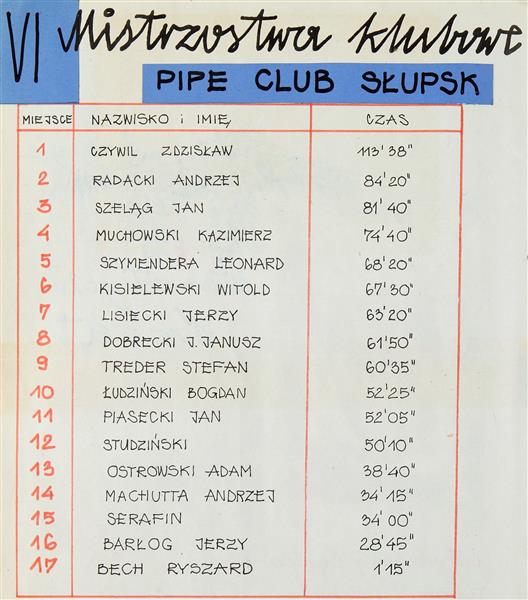 VI Mistrzostwa klubowe
PIPE CLUB SŁUPSK
MIEJSCE NAZWISKO i IMIĘ CZAS
1 CZYWIL ZDZISŁAW 113'38"
2 RADACKI ANDRZEJ 84'20"
3 SZELĄG JAN 81'40"
4 MUCHOWSKI KAZIMIERZ 74'40"
5 SZYMENDERA LEONARD 68'20"
6 KISIELEWSKI WITOLD 67'30"
7 LISIECKI JERZY 63'20"
8 DOBRECKI J. JANUSZ 61'50"
9 TREDER STEFAN 60'35"
10 ŁUDZIŃSKI BOGDAN 52'25"
11 PIASECKI JAN 52'05"
12 STUDZIŃSKI 50'10"
13 OSTROWSKI ADAM 38'40"
14 MACHUTTA ANDRZEJ 34'15"
15 SERAFIN 34'00"
16 BARŁOG JERZY 28'45"
17 BECH RYSZARD 1'15"